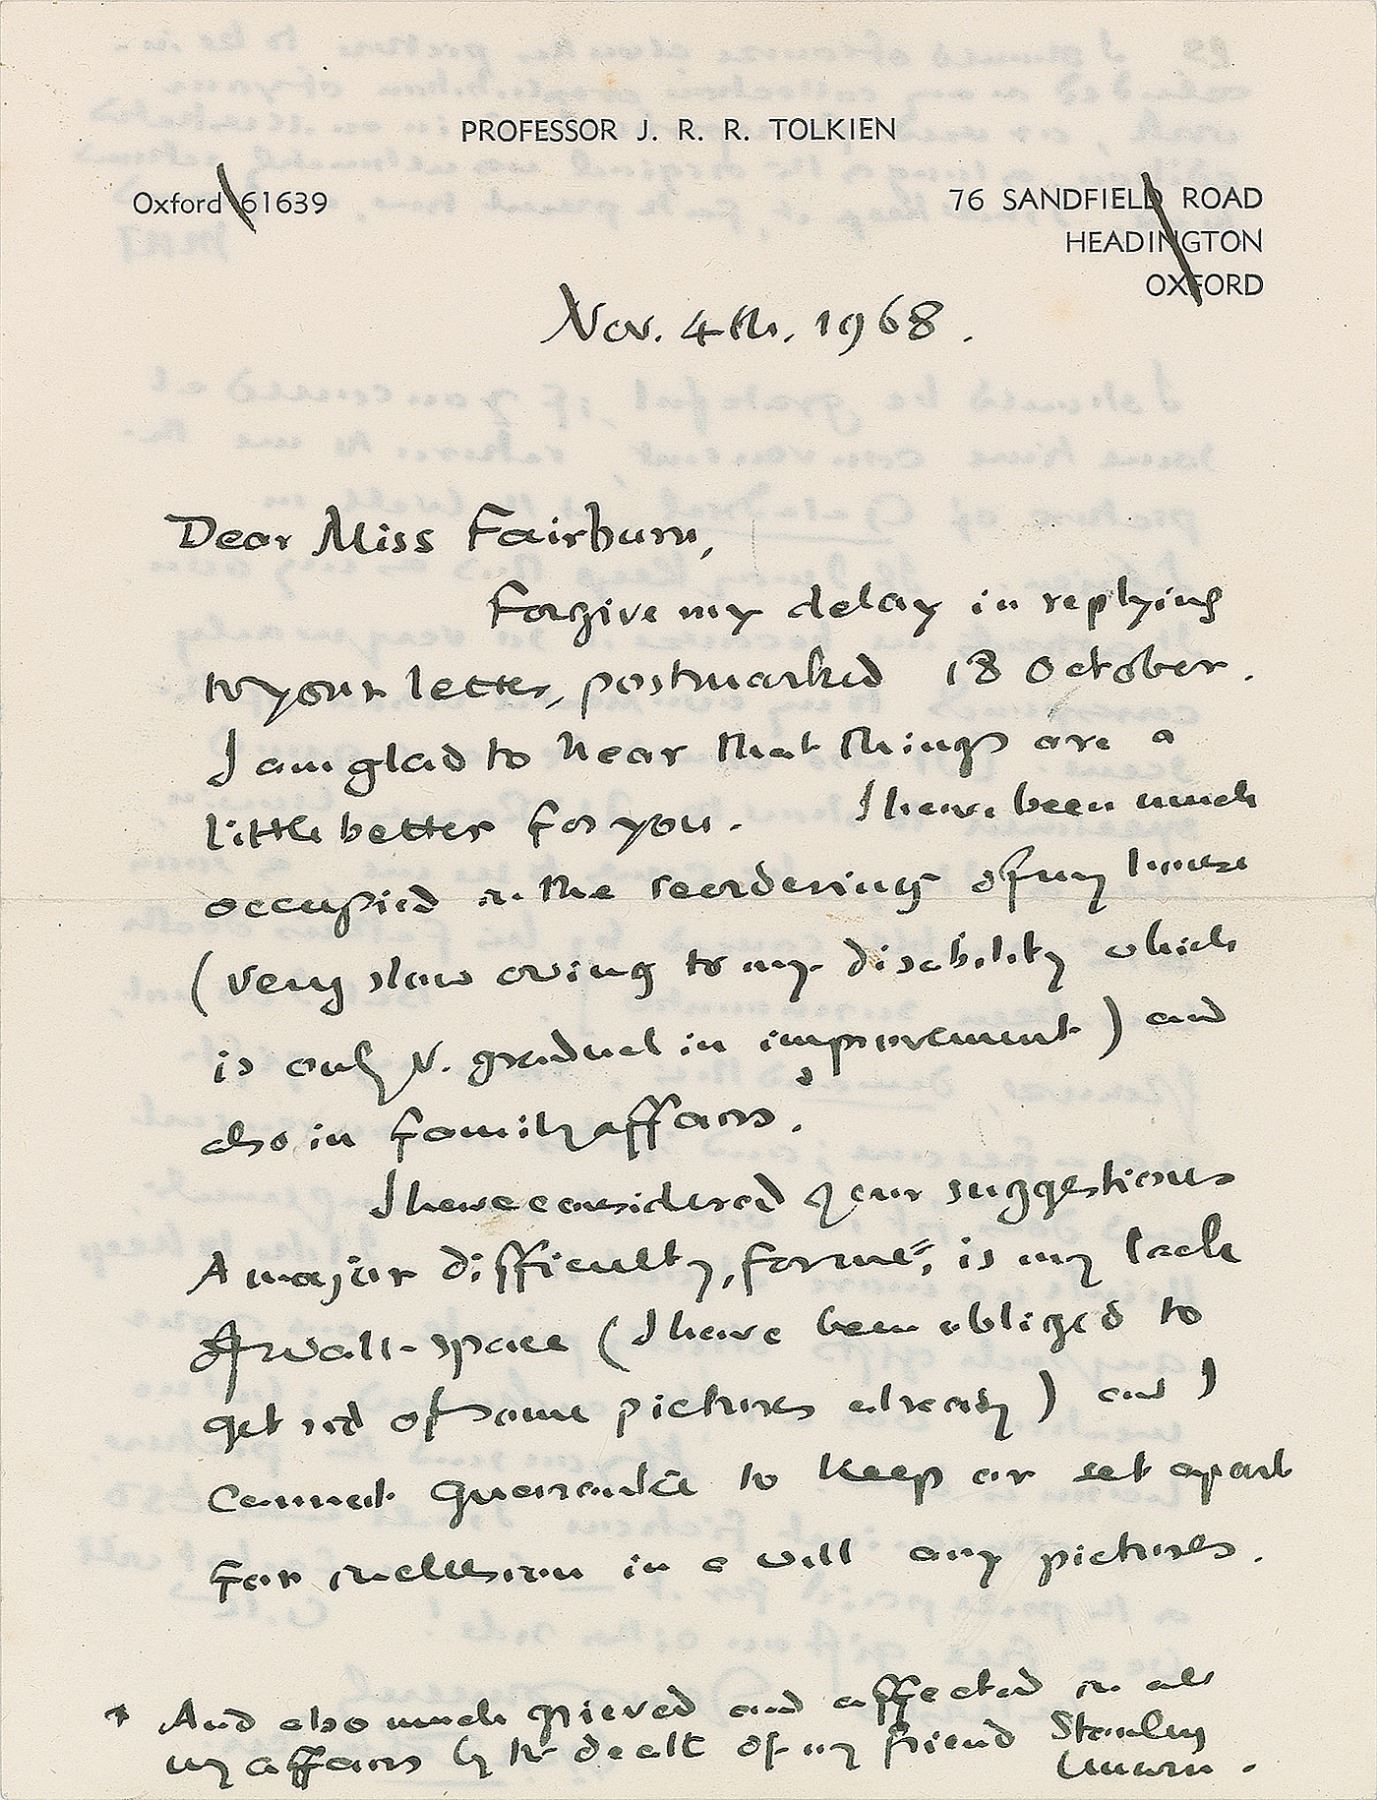 PROFESSOR J. R. R. TOLKIEN
Oxford 61639
76 SANDFIELD ROAD
HEADINGTON
OXFORD
Nov. 4th. 1968.
Dear Miss Fairburn,
Forgive my delay in replying
to your letter, postmarked 18 October.
I am glad to hear that things are a
little better for you. I have been much
occupied in the reordering of my house
(very slow owing to my disability which
is only v. gradual in improvement) and
also in family affairs.
I have considered your suggestions
A major difficulty, for me, is my lack
of wall-space (I have been obliged to
get rid of some pictures already) and I
cannot guarantee to keep or set apart
for in a will any pictures.
* And also much grieved and affected in all
my affairs by the death of my friend Stanley
Unwin.